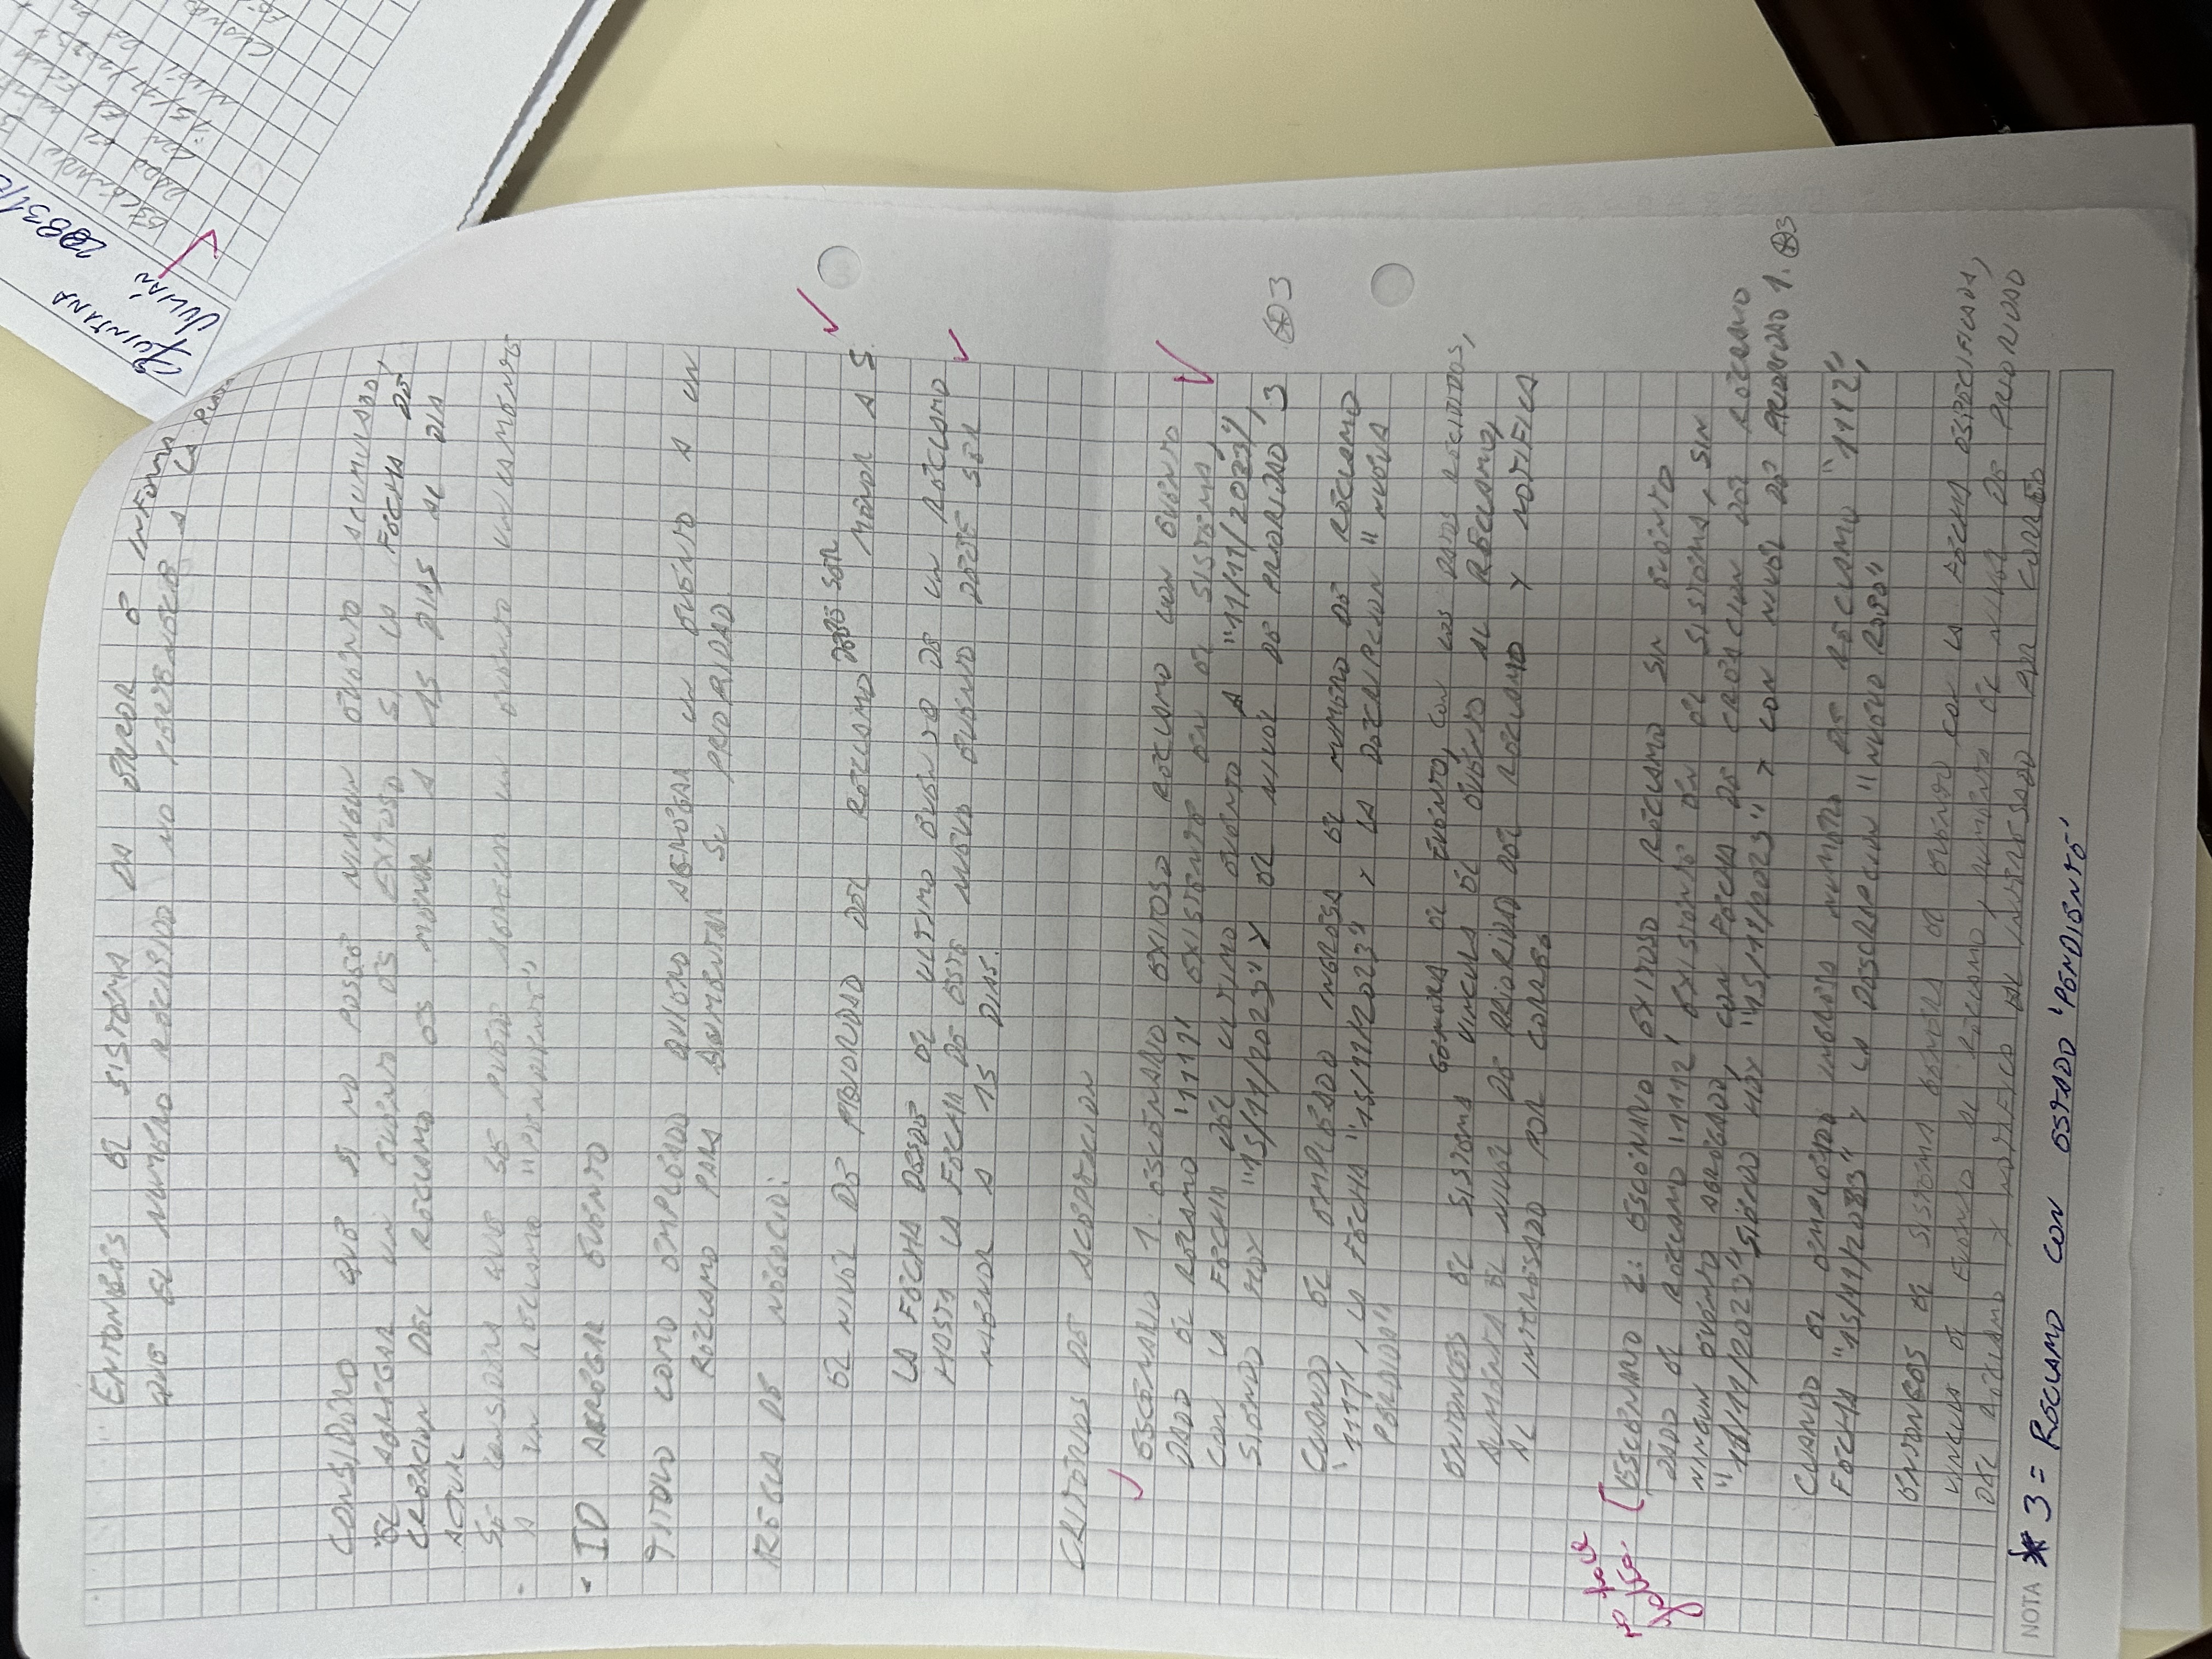 ENTONCES EL SISTEMA DA ERROR E INFORMA
QUE EL NUMERO RECIBIDO NO PERTENECE A LA
CONSIDERO QUE SI NO POSEE NINGUN EVENTO ACUMULADO,
EL AGREGAR UN EVENTO ES EXITOSO SI LA FECHA DE
CREACION DEL RECLAMO ES MENOR A 15 DIAS AL DIA
ACTUAL
SE CONSIDERA QUE SE PUEDE AGREGAR UN EVENTO UNICAMENTE
- A UN RECLAMO "PENDIENTE"
- ID AGREGAR EVENTO
TITULO COMO EMPLEADO QUIERO AGREGAR UN EVENTO A UN
RECLAMO PARA AUMENTAR SU PRIORIDAD
REGLA DE NEGOCIO:
EL NIVEL DE PRIORIDAD DEL RECLAMO DEBE SER MENOR A 5.
LA FECHA DESDE EL ULTIMO EVENTO DE UN RECLAMO
HASTA LA FECHA DE ESTE NUEVO EVENTO DEBE SER
MENOR A 15 DIAS.
CRITERIOS DE ACEPTACION
ESCENARIO 1: ESCENARIO EXITOSO RECLAMO CON EVENTO
DADO EL RECLAMO '1111' EXISTENTE EN EL SISTEMA,
CON LA FECHA DEL ULTIMO EVENTO A "11/11/2023",
SIENDO HOY "15/11/2023" Y EL NIVEL DE PRIORIDAD 3 *3
CUANDO EL EMPLEADO INGRESA EL NUMERO DE RECLAMO
'1111', LA FECHA "15/11/2023" Y LA DECRIPCION "NUEVA
PERDIDA"
GENERA EL EVENTO, CON LOS DATOS RECIBIDOS,
ENTONCES EL SISTEMA VINCULA EL EVENTO AL RECLAMO,
AUMENTA EL NIVEL DE PRIORIDAD DEL RECLAMO Y NOTIFICA
AL INTERESADO POR CORREO
no hace
falta
ESCENARIO 2: ESCENARIO EXITOSO RECLAMO SIN EVENTO
DADO EL RECLAMO '1112' EXISTENTE EN EL SISTEMA, SIN
NINGUN EVENTO AGREGADO, CON FECHA DE CREACION DEL RECLAMO
SIENDO HOY "15/11/2023" Y CON NIVEL DE PRIORIDAD 1. *3
CUANDO EL EMPLEADO INGRESA NUMERO DE RECLAMO "1112",
FECHA "15/11/2023" Y LA DESCRIPCION "NUEVO ROBO"
ENTONCES EL SISTEMA GENERA EL EVENTO CON LA FECHA ESPECIFICADA,
VINCULA EL EVENTO AL RECLAMO, AUMENTA EL NIVEL DE PRIORIDAD
DEL RECLAMO Y NOTIFICA AL INTERESADO POR CORREO
NOTA * 3 = RECLAMO CON ESTADO 'PENDIENTE'
QUINTANA
JULIÁN
ESCENARIO
DADO EL
CON LA
"15/11/2023"
NIVEL DE
CUANDO